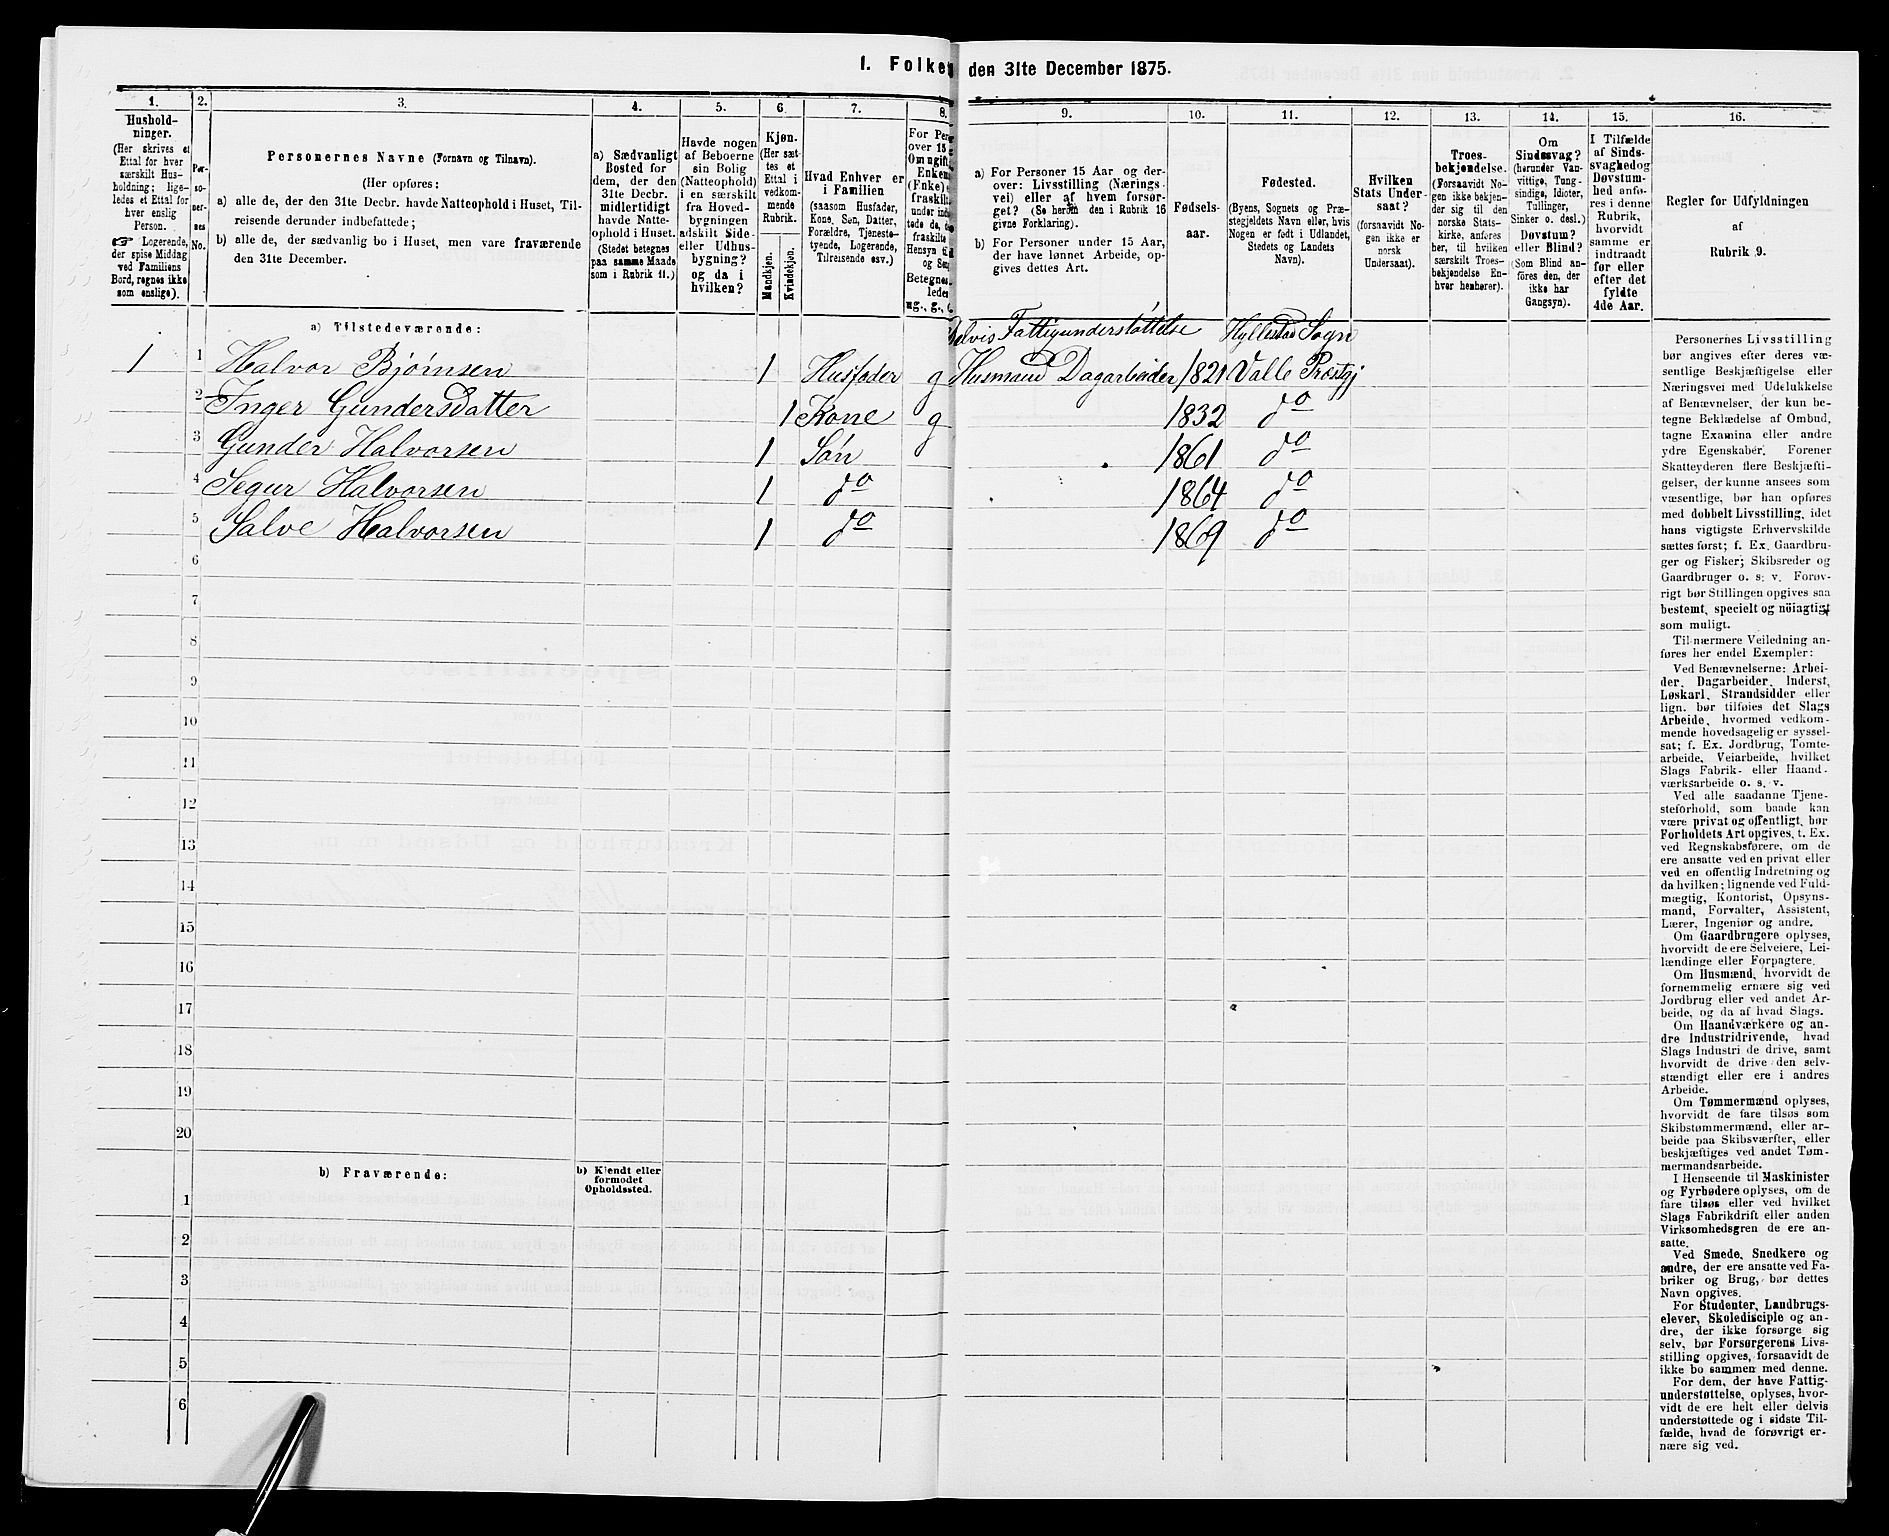 1. Folke den 31te December 1875.
1. 2. 3. 4. 5. 6. 7. 8. 9. 10. 11. 12. 13. 14. 15. 16.
Hushold-
ninger.
(Her skrives et
Ettal for hver
særskilt Hus-
holdning; lige-
ledes et Ettal for
hver enslig
Person.
☞ Logerende,
der spise Middag
ved Familiens
Bord, regnes ikke
som enslige).
Per-
so-
ner-
nes
No.
Personernes Navne (Fornavn og Tilnavn).
(Her opføres:
a) alle de, der den 31te Decbr. havde Natteophold i Huset, Til-
reisende derunder indbefattede;
b) alle de, der sædvanlig bo i Huset, men vare fraværende
den 31te December.
a) Sædvanligt
Bosted for
dem, der den
31te Decbr.
midlertidigt
havde Natte-
ophold i Huset.
(Stedet betegnes
paa samme Maade
som i Rubrik 11.)
Havde nogen
af Beboerne
sin Bolig
(Natteophold)
i en særskilt
fra Hoved-
bygningen
adskilt Side-
eller Udhus-
bygning?
og da i
hvilken?
Kjøn.
(Her sæt-
tes et
Ettal i
vedkom-
mende
Rubrik.
Mandkjøn.
Kvindekjøn.
Hvad Enhver er
i Familien
(saasom Husfader,
Kone, Søn, Datter,
Forældre, Tjeneste-
tyende, Logerende,
Tilreisende osv.)
For Per
over 15
Om ugift
Enkem
(Enke)
fraskilt
under ind
tede de,
fraskilte
Hensyn til
og Sen
Betegnes
ledes
ug., g.,
a) For Personer 15 Aar og der-
over: Livsstilling (Nærings-
vei) eller af hvem forsør-
get? (Se herom den i Rubrik 16
givne Forklaring).
b) For Personer under 15 Aar,
der have lønnet Arbeide, op-
gives dettes Art.
Fødsels-
aar.
Fødested.
(Byens, Sognets og Præ-
stegjeldets Navn eller, hvis
Nogen er født i Udlandet,
Stedets og Landets
Navn).
Hvilken
Stats Under-
saat?
(forsaavidt No-
gen ikke er
norsk
Undersaat).
Troes-
bekjendelse.
(Forsaavidt No-
gen ikke bekjen-
der sig til den
norske Stats-
kirke, anføres
her, til hvilken
særskilt Troes-
bekjendelse En-
hver henhører).
Om
Sindssvag?
(herunder Van-
vittige, Tung-
sindige, Idioter,
Tullinger,
Sinker o. desl.)
Døvstum?
eller Blind?
(Som Blind an-
føres den, der
ikke har
Gangsyn).
I Tilfælde
af Sinds-
svaghed og
Døvstum-
hed anfø-
res i denne
Rubrik,
hvorvidt
samme er
indtraadt
før eller
efter det
fyldte
4de Aar.
Regler for Udfyldningen
af
Rubrik 9.
a) Tilstedeværende:
Delvis Fattigunderstøttelse Hyllestad Sogn
1 1 Halvor Bjørnsen 1 Husfader g Husmand Dagarbeider 1821 Valle Præstgj
2 Inger Gundersdatter 1 Kone g 1832 do
3 Gunder Halvorsen 1 Søn 1861 do
4 Segur Halvorsen 1 do 1864 do
5 Salve Halvorsen 1 do 1869 do
6
7
8
9
10
11
12
13
14
15
16
17
18
19
20
b) Fraværende:
b) Kjendt eller
formodet
Opholdssted.
1
2
3
4
5
6
Personernes Livsstilling
bør angives efter deres væ-
sentlige Beskjæftigelse eller
Næringsvei med Udelukkelse
af Benævnelser, der kun be-
tegne Beklædelse af Ombud,
tagne Examina eller andre
ydre Egenskaber. Forener
Skatteyderen flere Beskjæfti-
gelser, der kunne ansees som
væsentlige, bør han opføres
med dobbelt Livsstilling, idet
hans vigtigste Erhvervskilde
sættes først; f. Ex. Gaardbru-
ger og Fisker; Skibsreder og
Gaardbruger o. s. v. Forøv-
rigt bør Stillingen opgives saa
bestemt, specielt og nöiagtigt
som muligt.
Til nærmere Veiledning an-
føres her endel Exempler:
Ved Benævnelserne: Arbei-
der, Dagarbeider, Inderst,
Løskarl, Strandsidder eller
lign. bør tilføies det Slags
Arbeide, hvormed vedkom-
mende hovedsagelig er syssel-
sat; f. Ex. Jordbrug, Tomte-
arbeide, Veiarbeide, hvilket
Slags Fabrik- eller Haand-
værksarbeide o. s. v.
Ved alle saadanne Tjene-
steforhold, som baade kan
være privat og offentligt, bør
Forholdets Art opgives, t. Ex.
ved Regnskabsførere, om de
ere ansatte ved en privat eller
ved en offentlig Indretning og
da hvilken; lignende ved Fuld-
mægtig, Kontorist, Opsyns-
mand, Forvalter, Assistent,
Lærer, Ingeniør og andre.
Om Gaardbrugere oplyses,
hvorvidt de ere Selveiere, Lei-
lændinge eller Forpagtere.
Om Husmænd, hvorvidt de
fornemmelig ernære sig ved
Jordbrug eller ved andet Ar-
beide, og da af hvad Slags.
Om Haandværkere og an-
dre Industridrivende, hvad
Slags Industri de drive, samt
hvorvidt de drive den selv-
stændigt eller ere i andres
Arbeide.
Om Tømmermænd oplyses,
hvorvidt de fare tilsøs som
Skibstømmermænd, eller ar-
beide paa Skibsværfter, eller
beskjæftiges ved andet Tøm-
mermandsarbeide.
I Henseende til Maskinister
og Fyrbødere oplyses, om de
fare tilsøs eller ved hvilket
Slags Fabrikdrift eller anden
Virksomhedsgren de ere an-
satte.
Ved Smede, Snedkere og
andre, der ere ansatte ved Fa-
briker og Brug, bør dettes
Navn opgives.
For Studenter, Landbrugs-
elever, Skoledisciple og an-
dre, der ikke forsørge sig
selv, bør Forsørgerens Livs-
stilling opgives, forsaavidt de
ikke bo sammen med denne.
For dem, der have Fattig-
understøttelse, oplyses, hvor-
vidt de ere helt eller delvis
understøttede og i sidste Til-
fælde, hvad de forøvrigt er-
nære sig ved.